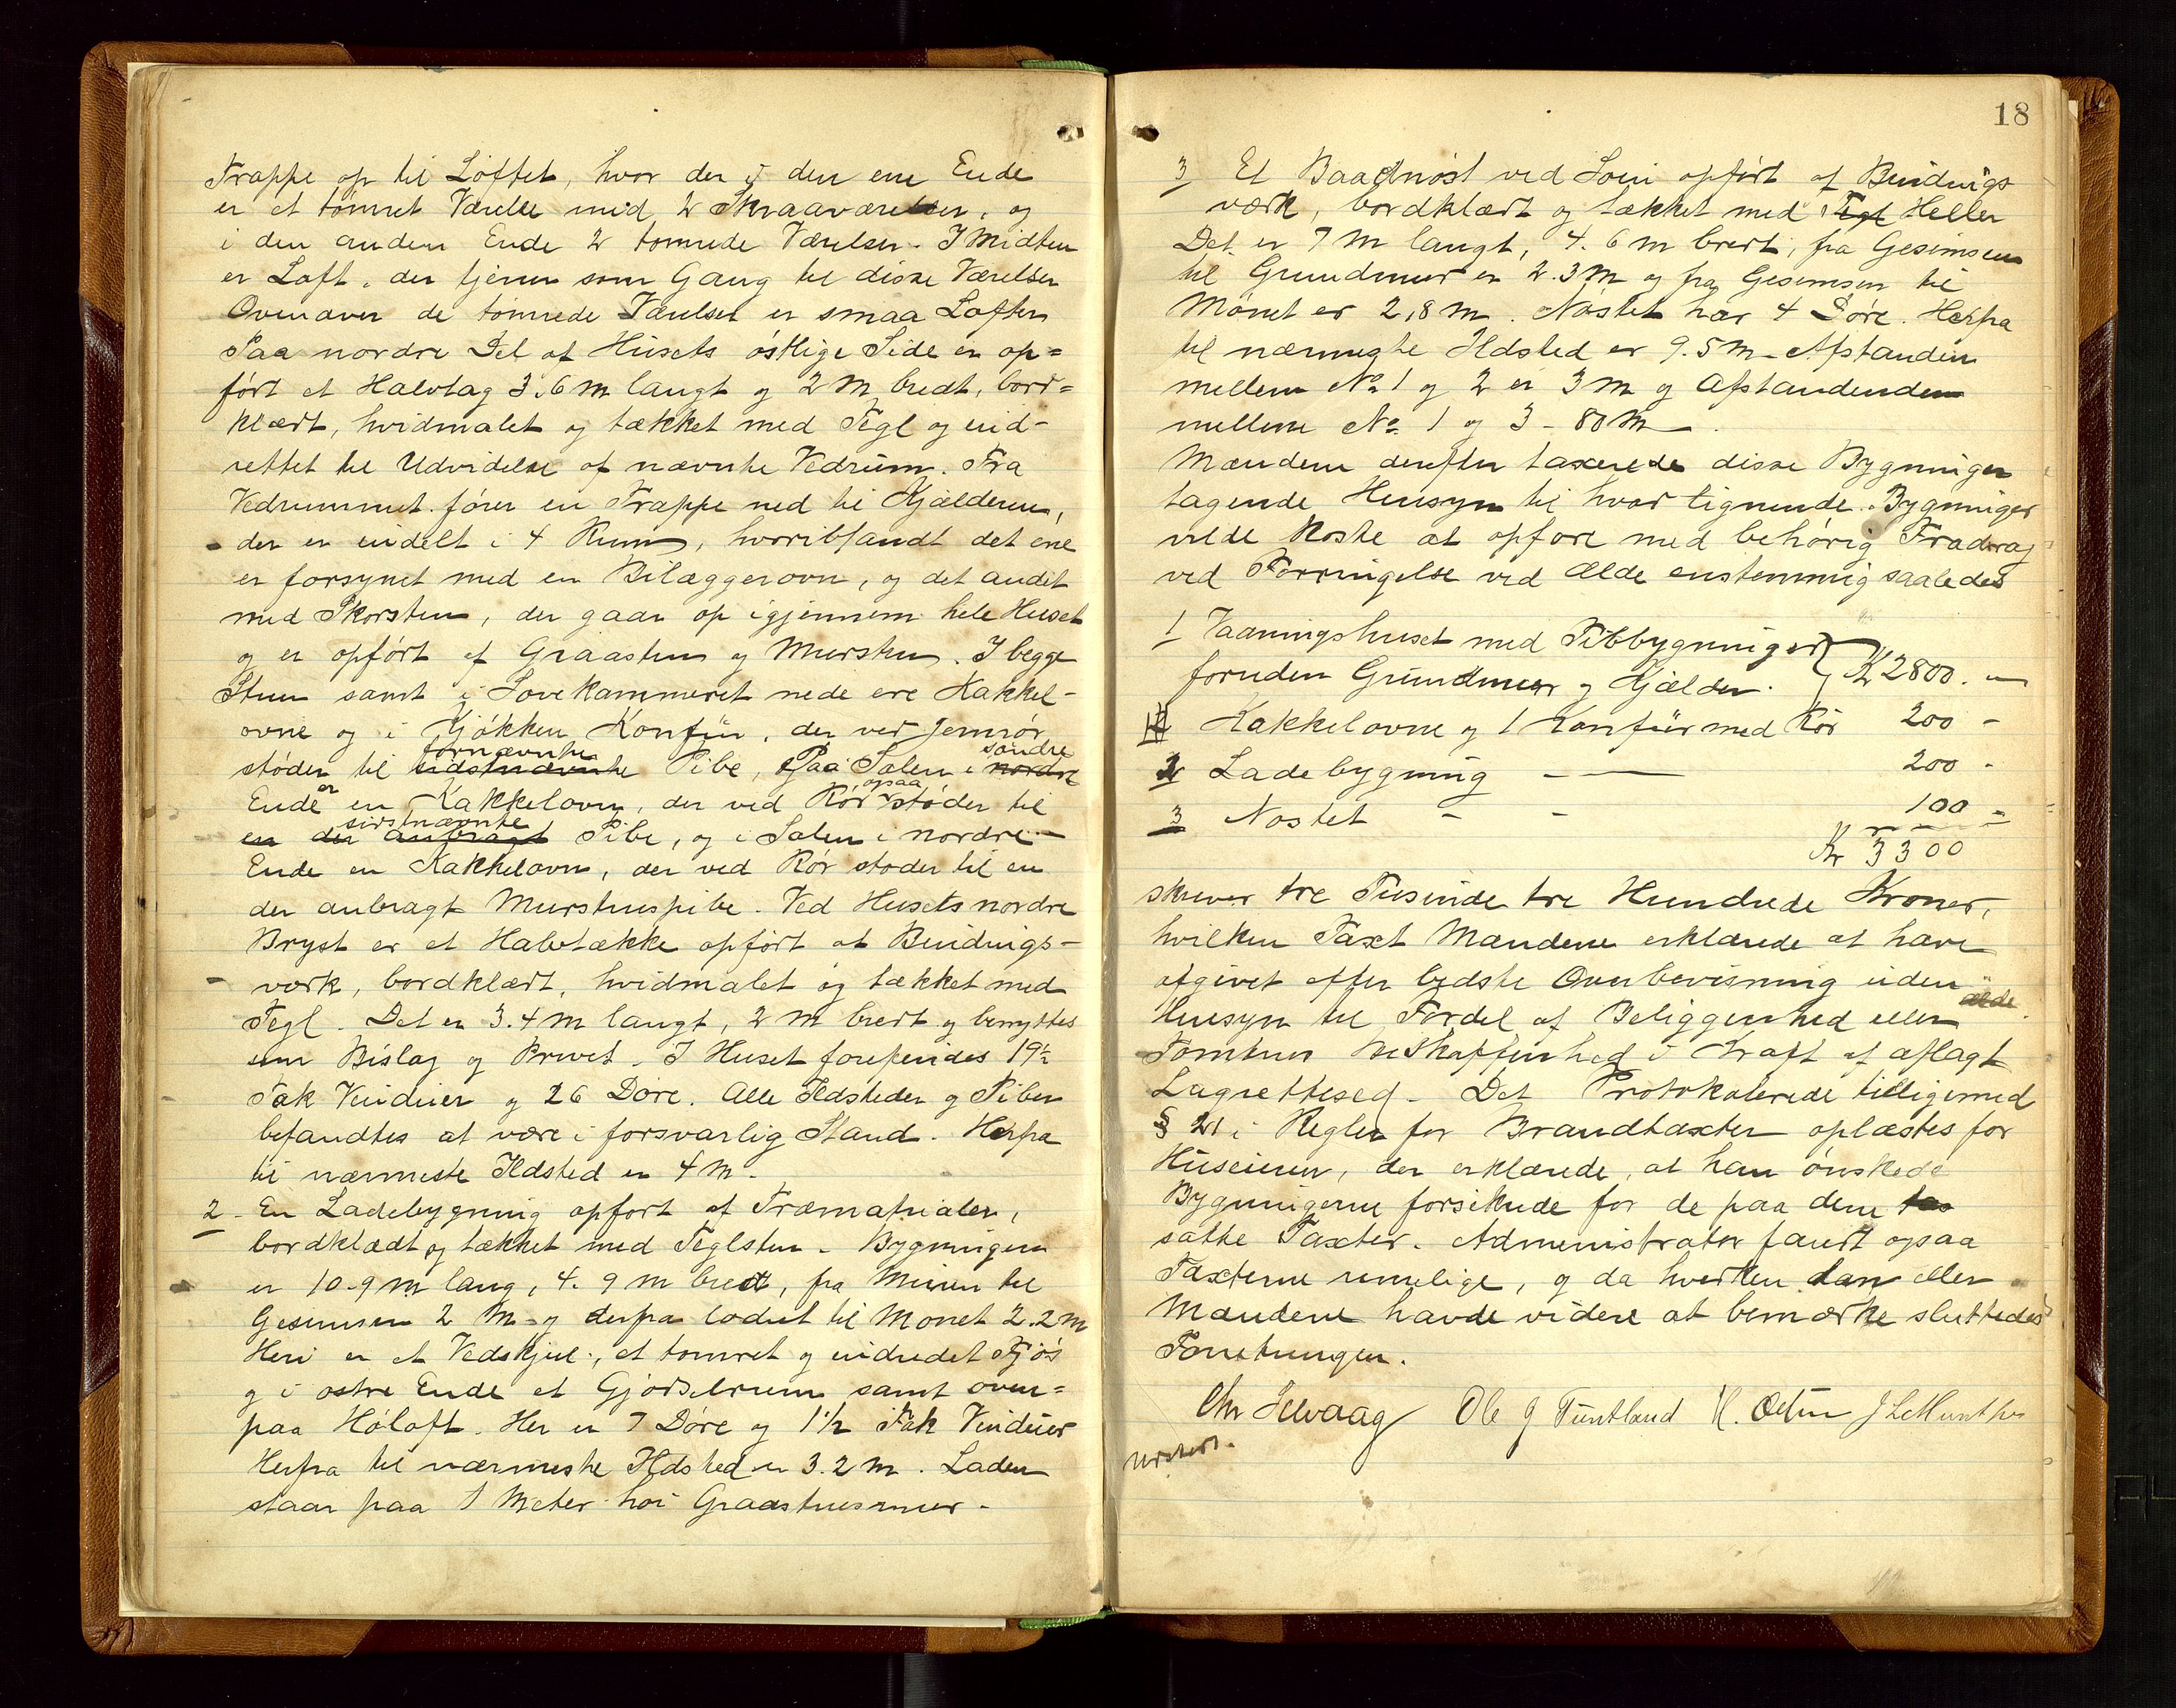 Trappe op til Loftet, hvor der i den ene Ende
er et tømret Værelse med 2 Skraaværelser, og
i den anden Ende 2 tømrede Værelser. I Midten
er Loft, der tjener som Gang til disse Værelser
Ovenover de tømrede Værelser er smaa Lofter
Paa nordre Del af Husets østlige Side er op=
ført et Halvtag 3.6 m langt og 2 M bredt, bord=
klædt, hvidmalet og tækket med Tegl og ind-
rettet til Udvidelse af nævnte Vedrum. Fra
Vedrummet fører en Trappe ned til Kjælderen,
der er inddelt i 4 Rum, hvoriblandt det ene
er forsynet med en Bilæggerovn, og det andet
med Skorsten, der gaar op igjennem hele Huset
og er opført af Graasten og Mursten. I begge
Stuer samt i Sovekammeret nede ere Kakkel-
ovne og i Kjøkken Komfür, der ved Jernrør
fornævnte søndre
støder til sidstnævnte Pibe, Paa Salen i nordre
er opsaa
Ende en Kakkelovn, der ved Rør støder til
sidstnævnte
en der anbragt Pibe, og i Salen i nordre
Ende en Kakkelovn, der ved Rør støder til en
der anbragt Murstenspibe. Ved Husets nordre
Bryst er et Halvtække opført af Bindings-
værk, bordklædt, hvidmalet og tækket med
Tegl. Det er 3.4 m langt, 2 m bredt og benyttes
som Bislag og Privet. I Huset forefindes 19½
Fak Vinduer og 26 Døre. Alle Ildsteder og Piber
befandtes at være i forsvarlig Stand. Herfra
til nærmeste Ildsted er 4 M.
2 - En Ladebygning opført af Træmaterialer,
bordklædt og tækket med Teglsten. Bygningen
er 10.9 m lang, 4.9 m bredt, fra Muren til
Gesimsen 2 M og derfra lodret til Mønet 2.2 m
Heri er et Vedskjul, et tømret og indredet Fjøs
og i østre Ende et Gjødselrum samt oven=
paa Høloft. Her er 7 Døre og 1½ Fak Vinduer
Herfra til nærmeste Ildsted er 3.2 m. Laden
staar paa 1 Meter høi Graastensmur.
18
3 Et Baadnøst ved Søen opført af Bindings
værk, bordklædt og tækket med Tegl Heller
Det er 7 M langt, 4.6 m bredt, fra Gesimsen
til Grundmur er 2.3 m og fra Gesimsen til
Mønet er 2,8 m. Nøstet har 4 Døre. Herfra
til nærmeste Ildsted er 9.5 m. Afstanden
mellem No 1 og 2 er 3 m og Afstandenden
mellem No 1 og 3 - 80 m.
Mændene derefter taxerede disse Bygninger
tagende Hensyn til hvad lignende Bygninger
vilde koste at opføre med behørig Fradrag
ved Forringelse ved Ælde enstemmig saaledes
1 Vaaningshuset med Tilbygninger
foruden Grundmur og Kjælder. Kr 2800. -
Kakkelovne og 1 Komfür med Rør 200 -
2 Ladebygning - 200 -
3 Nøstet - - 100 =
Kr 3300
skriver tre Tusinde tre Hundrede Kroner,
hvilken Taxt Mændene erklærede at have
afgivet efter bedste Overbevisning uden
ælde
Hensyn til Fordel af Beliggenhed eller
Tomtens Beskaffenhed i Kraft af aflagt
Lagrettesed - Det Protokolerede tilligemed
§ 21 i Regler for Brandtaxter oplæstes for
Huseieren, der erklærede, at han ønskede
Bygningerne forsikrede for de paa dem tax
satte Taxter. Administrator fandt opsaa
Taxterne rimelige, og da hverken han eller
Mændene havde videre at bemærke sluttedes
Forretningen.
Chr Selvaag Ole J Tuntland